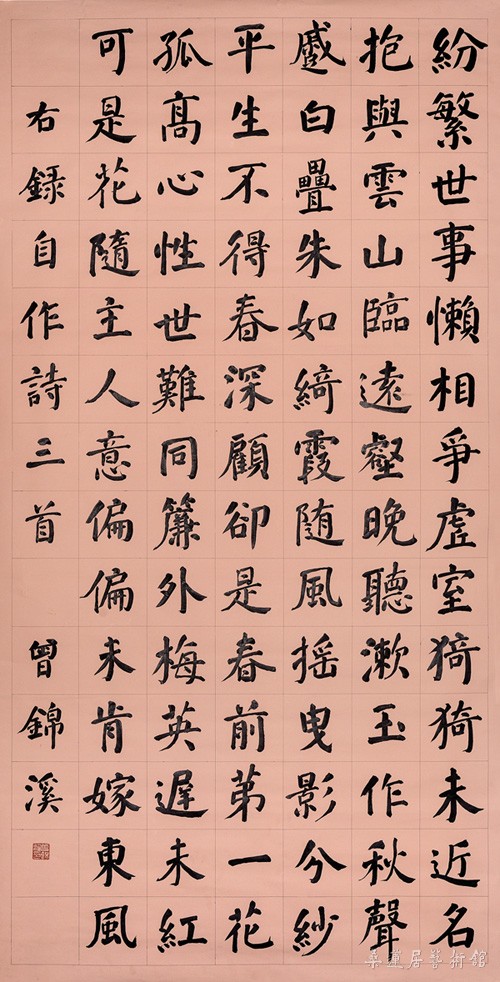 紛繁世事懶相爭虛室猗猗未近名
抱與雲山臨遠壑晚聽漱玉作秋聲
蹙白疊朱如綺霞随風搖曳影分紗
平生不得春深顧卻是春前第一花
孤髙心性世難同簾外梅英遲未紅
可是花隨主人意偏偏未肯嫁東風
右録自作詩三首 曾錦溪
蓮居藝術館